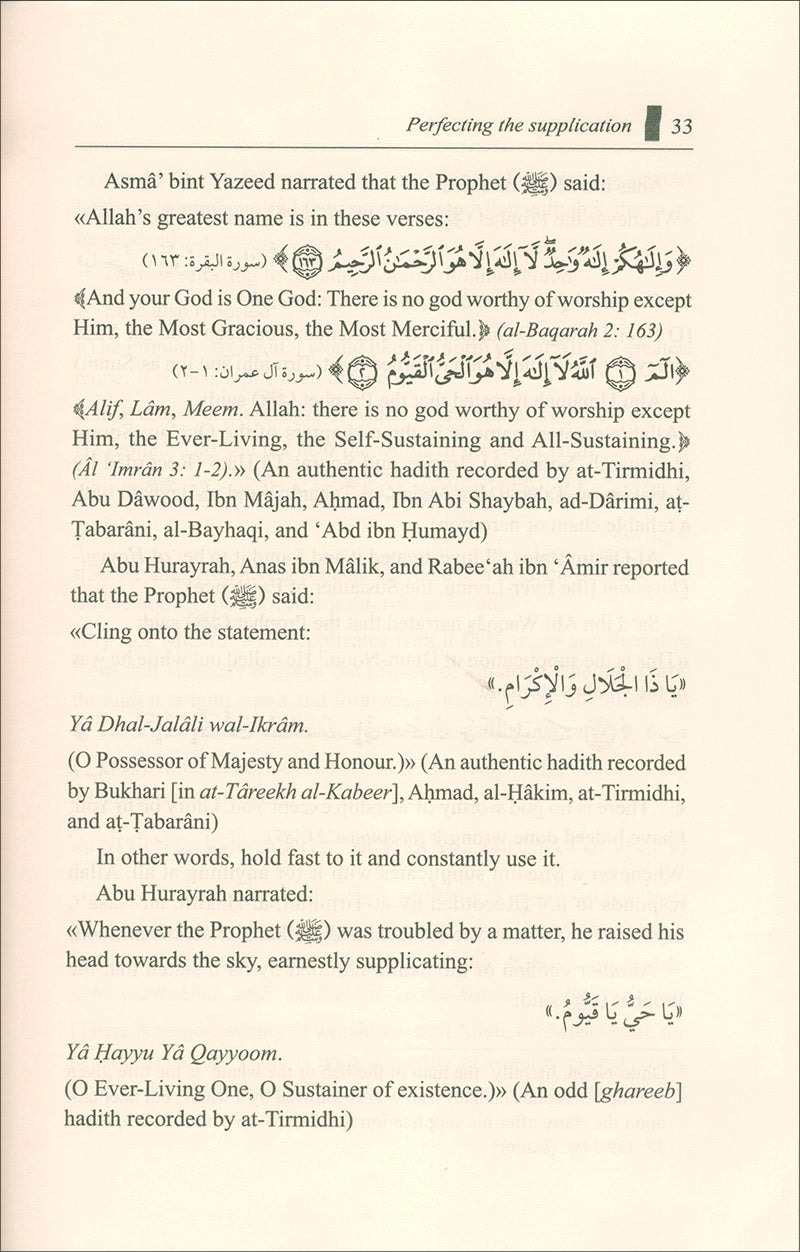 Perfecting the supplication 33
Asmâ’ bint Yazeed narrated that the Prophet (ﷺ) said:
«Allah’s greatest name is in these verses:
﴿وَإِلَٰهُكُمْ إِلَٰهٌ وَٰحِدٌ ۖ لَّآ إِلَٰهَ إِلَّا هُوَ ٱلرَّحْمَٰنُ ٱلرَّحِيمُ ١٦٣﴾ (سورة البقرة: ١٦٣)
﴾And your God is One God: There is no god worthy of worship except
Him, the Most Gracious, the Most Merciful.﴿ (al-Baqarah 2: 163)
﴿الٓمٓ ١ ٱللَّهُ لَآ إِلَٰهَ إِلَّا هُوَ ٱلْحَىُّ ٱلْقَيُّومُ ٢﴾ (سورة آل عمران: ١-٢)
﴾Alif, Lâm, Meem. Allah: there is no god worthy of worship except
Him, the Ever-Living, the Self-Sustaining and All-Sustaining.﴿
(Âl ‘Imrân 3: 1-2).» (An authentic hadith recorded by at-Tirmidhi,
Abu Dâwood, Ibn Mâjah, Aḥmad, Ibn Abi Shaybah, ad-Dârimi, aṭ-
Ṭabarâni, al-Bayhaqi, and ‘Abd ibn Ḥumayd)
Abu Hurayrah, Anas ibn Mâlik, and Rabee‘ah ibn ‘Âmir reported
that the Prophet (ﷺ) said:
«Cling onto the statement:
«يَا ذَا الْجَلَالِ وَالْإِكْرَامِ.»
Yâ Dhal-Jalâli wal-Ikrâm.
(O Possessor of Majesty and Honour.)» (An authentic hadith recorded
by Bukhari [in at-Târeekh al-Kabeer], Aḥmad, al-Ḥâkim, at-Tirmidhi,
and aṭ-Ṭabarâni)
In other words, hold fast to it and constantly use it.
Abu Hurayrah narrated:
«Whenever the Prophet (ﷺ) was troubled by a matter, he raised his
head towards the sky, earnestly supplicating:
«يَا حَيُّ يَا قَيُّومُ.»
Yâ Ḥayyu Yâ Qayyoom.
(O Ever-Living One, O Sustainer of existence.)» (An odd [ghareeb]
hadith recorded by at-Tirmidhi)